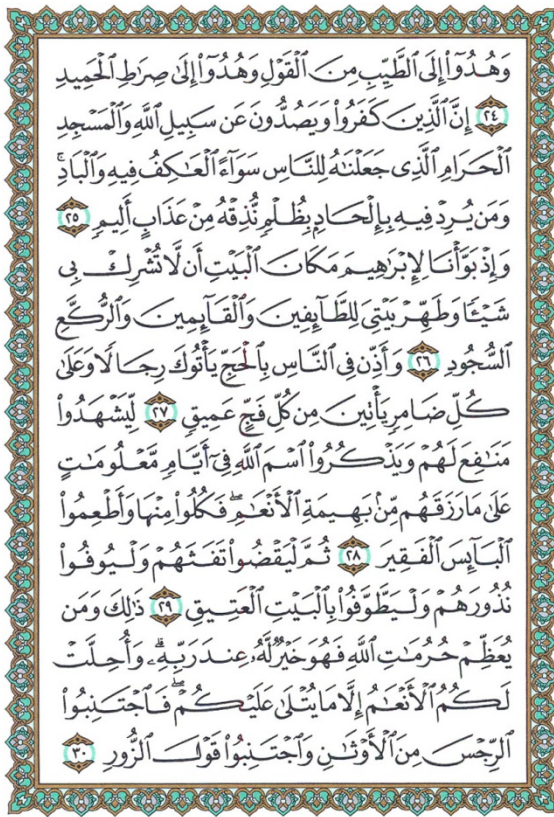 وَهُدُوٓا۟ إِلَى ٱلطَّيِّبِ مِنَ ٱلْقَوْلِ وَهُدُوٓا۟ إِلَىٰ صِرَٰطِ ٱلْحَمِيدِ
٢٤ إِنَّ ٱلَّذِينَ كَفَرُوا۟ وَيَصُدُّونَ عَن سَبِيلِ ٱللَّهِ وَٱلْمَسْجِدِ
ٱلْحَرَامِ ٱلَّذِى جَعَلْنَٰهُ لِلنَّاسِ سَوَآءً ٱلْعَٰكِفُ فِيهِ وَٱلْبَادِ ۚ
وَمَن يُرِدْ فِيهِ بِإِلْحَادٍۭ بِظُلْمٍ نُّذِقْهُ مِنْ عَذَابٍ أَلِيمٍ ٢٥
وَإِذْ بَوَّأْنَا لِإِبْرَٰهِيمَ مَكَانَ ٱلْبَيْتِ أَن لَّا تُشْرِكْ بِى
شَيْـًٔا وَطَهِّرْ بَيْتِىَ لِلطَّآئِفِينَ وَٱلْقَآئِمِينَ وَٱلرُّكَّعِ
ٱلسُّجُودِ ٢٦ وَأَذِّن فِى ٱلنَّاسِ بِٱلْحَجِّ يَأْتُوكَ رِجَالًا وَعَلَىٰ
كُلِّ ضَامِرٍ يَأْتِينَ مِن كُلِّ فَجٍّ عَمِيقٍ ٢٧ لِّيَشْهَدُوا۟
مَنَٰفِعَ لَهُمْ وَيَذْكُرُوا۟ ٱسْمَ ٱللَّهِ فِىٓ أَيَّامٍ مَّعْلُومَٰتٍ
عَلَىٰ مَا رَزَقَهُم مِّنۢ بَهِيمَةِ ٱلْأَنْعَٰمِ ۖ فَكُلُوا۟ مِنْهَا وَأَطْعِمُوا۟
ٱلْبَآئِسَ ٱلْفَقِيرَ ٢٨ ثُمَّ لْيَقْضُوا۟ تَفَثَهُمْ وَلْيُوفُوا۟
نُذُورَهُمْ وَلْيَطَّوَّفُوا۟ بِٱلْبَيْتِ ٱلْعَتِيقِ ٢٩ ذَٰلِكَ وَمَن
يُعَظِّمْ حُرُمَٰتِ ٱللَّهِ فَهُوَ خَيْرٌ لَّهُۥ عِندَ رَبِّهِۦ ۗ وَأُحِلَّتْ
لَكُمُ ٱلْأَنْعَٰمُ إِلَّا مَا يُتْلَىٰ عَلَيْكُمْ ۖ فَٱجْتَنِبُوا۟
ٱلرِّجْسَ مِنَ ٱلْأَوْثَٰنِ وَٱجْتَنِبُوا۟ قَوْلَ ٱلزُّورِ ٣٠